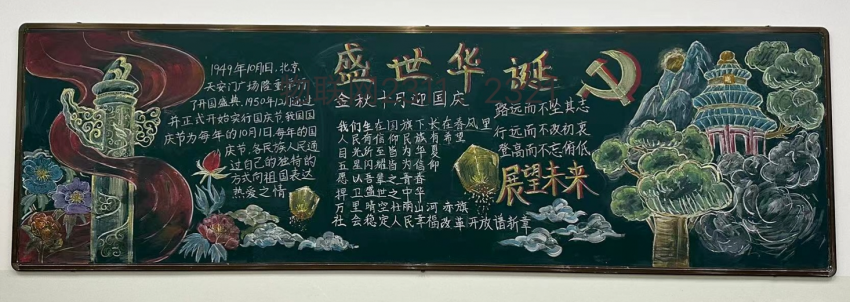 1949年10月1日,北京
天安门广场隆重举行
了开国盛典,1950年12月通过
并正式开始实行国庆节我国国
庆节为每年的10月1日,每年的国
庆节,各民族人民通
过自己的独特的
方式向祖国表达
热爱之情
盛世华诞
金秋十月迎国庆
我们生在闪旗下长在春风里
人民有信仰民族有希望
目光所至皆为华夏
五星闪耀皆为信仰
愿以吾辈之青春
捍卫盛世之中华
万里晴空壮丽山河赤旗
社会稳定人民幸福改革开放谱新章
路远而不坠其志
行远而不改初衷
登高而不忘俯低
展望未来